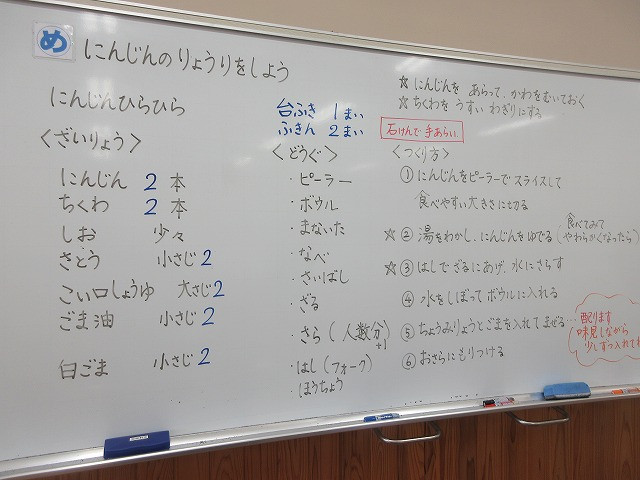 め にんじんのりょうりをしよう
にんじんひらひら
<ざいりょう>
にんじん 2 本
ちくわ 2 本
しお 少々
さとう 小さじ2
こい口しょうゆ 大さじ2
ごま油 小さじ2
白ごま 小さじ2
台ふき 1まい
ふきん 2まい
<どうぐ>
・ピーラー
・ボウル
・まないた
・なべ
・さいばし
・ざる
・さら(人数分)
+1
・はし(フォーク)
・ほうちょう
☆にんじんを あらって、かわをむいておく
☆ちくわを うすい わぎりにする
石けんで 手あらい
<つくり方>
①にんじんをピーラーでスライスして
食べやすい大きさに切る
☆②湯をわかし、にんじんをゆでる(食べてみて
やわらかくなったら)
☆③はしでざるにあげ、水にさらす
④水をしぼってボウルに入れる
⑤ちょうみりょうとごまを入れてまぜる…
配ります
味見しながら
少しずつ入れて
⑥おさらにもりつける